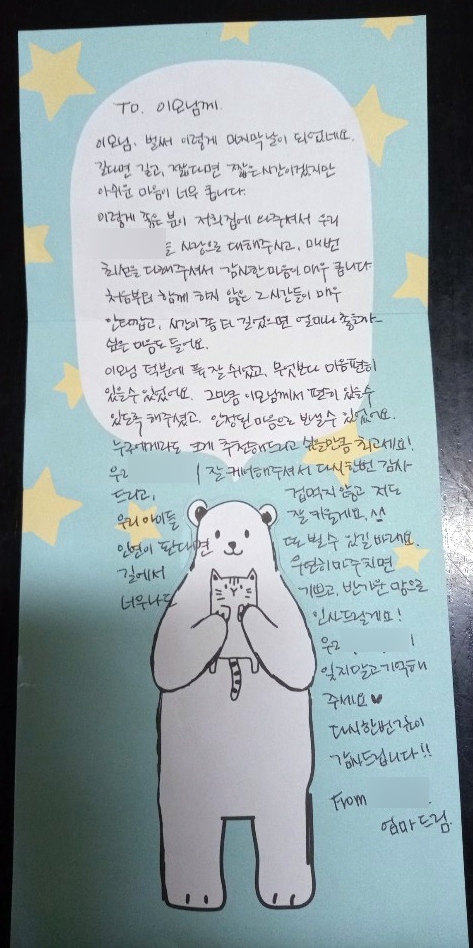 TO. 이모님께.
이모님, 벌써 이렇게 마지막날이 되었네요.
길다면 길고, 짧다면 짧은 시간이겠지만
아쉬운 마음이 너무 큽니다.
이렇게 좋은 분이 저희집에 와주셔서 우리
를 사랑으로 대해주시고, 매번
최선을 다해주셔서 감사한 마음이 매우 큽니다.
처음부터 함께 하지 않은 그 시간들이 매우
안타깝고, 시간이 좀 더 길었으면 얼마나 좋을까~
싶은 마음도 들어요.
이모님 덕분에 푹 잘 쉬었고, 무엇보다 마음편히
있을 수 있었어요. 그만큼 이모님께서 편히 있을수
있도록 해주셨고, 안정된 마음으로 보낼수 있었어요.
누구에게라도 추천해드리고 싶을만큼 최고세요!
우리 잘 케어해주셔서 다시한번 감사
드리고, 겁먹지 않고 저도
우리 아이들 잘 키울게요. ^^
인연이 된다면 또 뵐 수 있길 바래요.
길에서 우연히 마주치면
너무나도 기쁘고, 반가운 맘으로
인사드릴게요!
우리
잊지말고 기억해
주세요 ♥
다시한번 깊이
감사드립니다!!
From
엄마 드림.